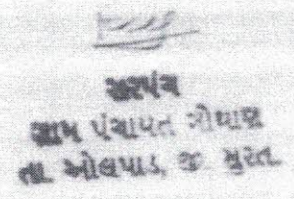 સરપંચ
ગ્રામ પંચાયત ગોથાણ
તા. ઓલપાડ, જી. સુરત.